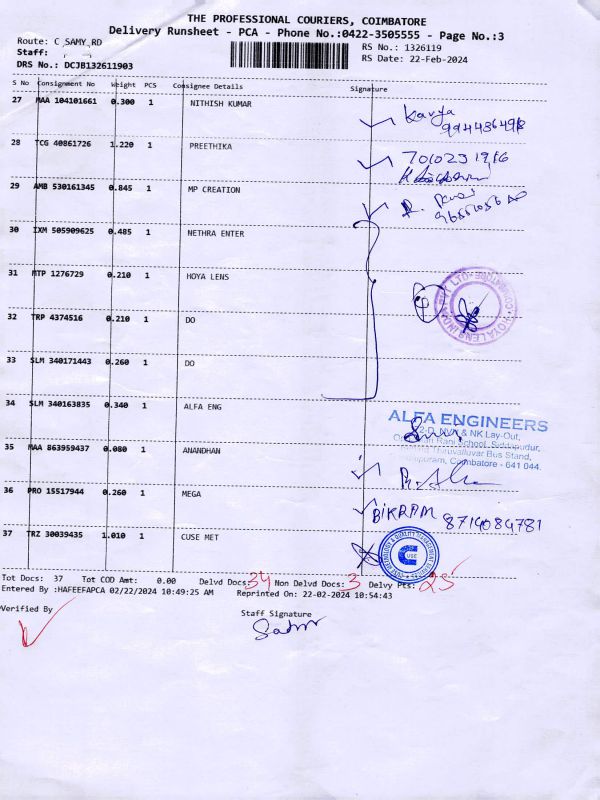 THE PROFESSIONAL COURIERS, COIMBATORE
Delivery Runsheet - PCA - Phone No.:0422-3505555 - Page No.:3
Route: C SAMY RD
RS No.: 1326119
Staff:
RS Date: 22-Feb-2024
DRS No.: DCJB132611903
S No Consignment No Weight PCS Consignee Details Signature
27 MAA 104101661 0.300 1 NITHISH KUMAR
Kavya
28 TCG 40861726 1.220 1 PREETHIKA
29 AMB 530161345 0.845 1 MP CREATION
30 IXM 505909625 0.485 1 NETHRA ENTER
31 MTP 1276729 0.210 1 HOYA LENS
32 TRP 4374516 0.210 1 DO
33 SLM 340171443 0.260 1 DO
34 SLM 340163835 0.340 1 ALFA ENG
ALFA ENGINEERS
NVN & NK Lay-Out,
Rani School, Siddapudur,
Thiruvalluvar Bus Stand,
Coimbatore - 641 044.
35 MAA 863959437 0.080 1 ANANDHAN
36 PRO 15517944 0.260 1 MEGA
BIKRAM 8714084781
37 TRZ 30039435 1.010 1 CUSE MET
CUSE
Tot Docs: 37 Tot COD Amt: 0.00 Delvd Docs: 34 Non Delvd Docs: 3 Delvy Pts: 25
Entered By :HAFEEFAPCA 02/22/2024 10:49:25 AM Reprinted On: 22-02-2024 10:54:43
Verified By
Staff Signature